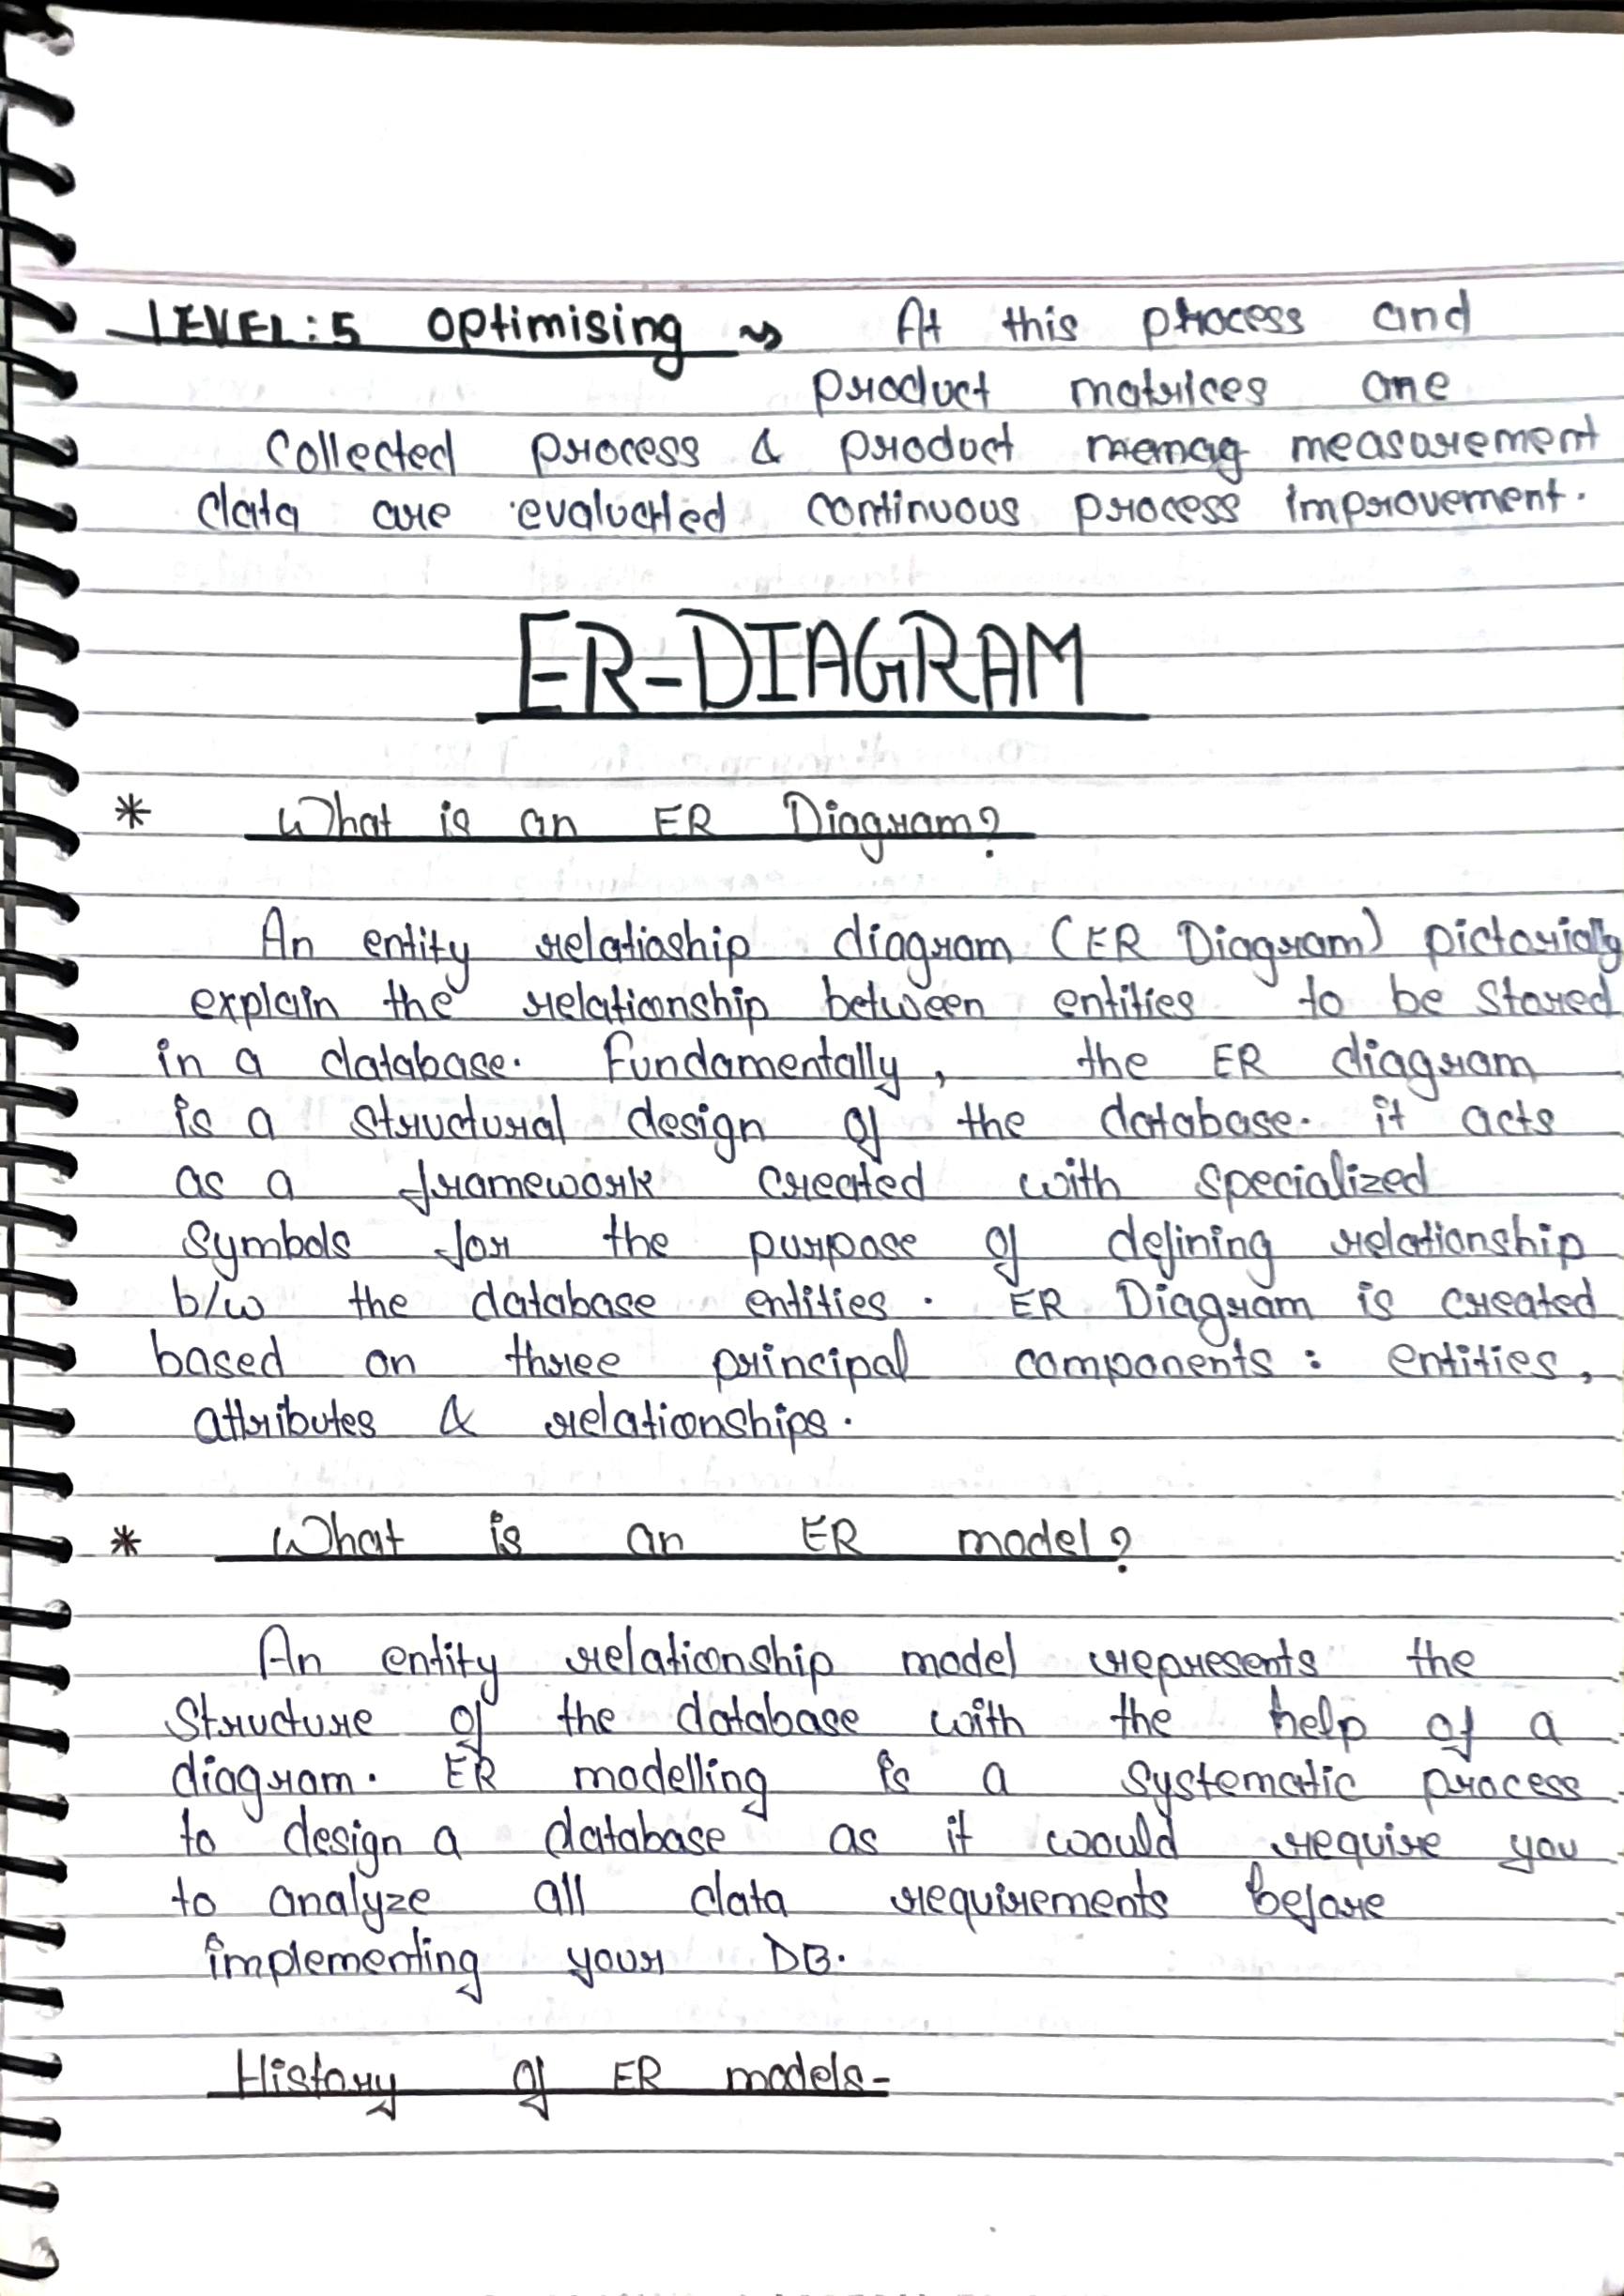 LEVEL:5 Optimising ⇝ At this process and
product matrices are
collected process & product memag measurement
data are evaluated continuous process improvement.
ER-DIAGRAM
* What is an ER Diagram?
An entity relatioship diagram (ER Diagram) pictorially
explain the relationship between entities to be stored
in a database. Fundamentally, the ER diagram
is a structural design of the database. it acts
as a framework created with specialized
symbols for the purpose of defining relationship
b/w the database entities. ER Diagram is created
based on three principal components: entities,
attributes & relationships.
* What is an ER model?
An entity relationship model represents the
structure of the database with the help of a
diagram. ER modelling is a systematic process
to design a database as it would require you
to analyze all data requirements before
implementing your DB.
History of ER models-